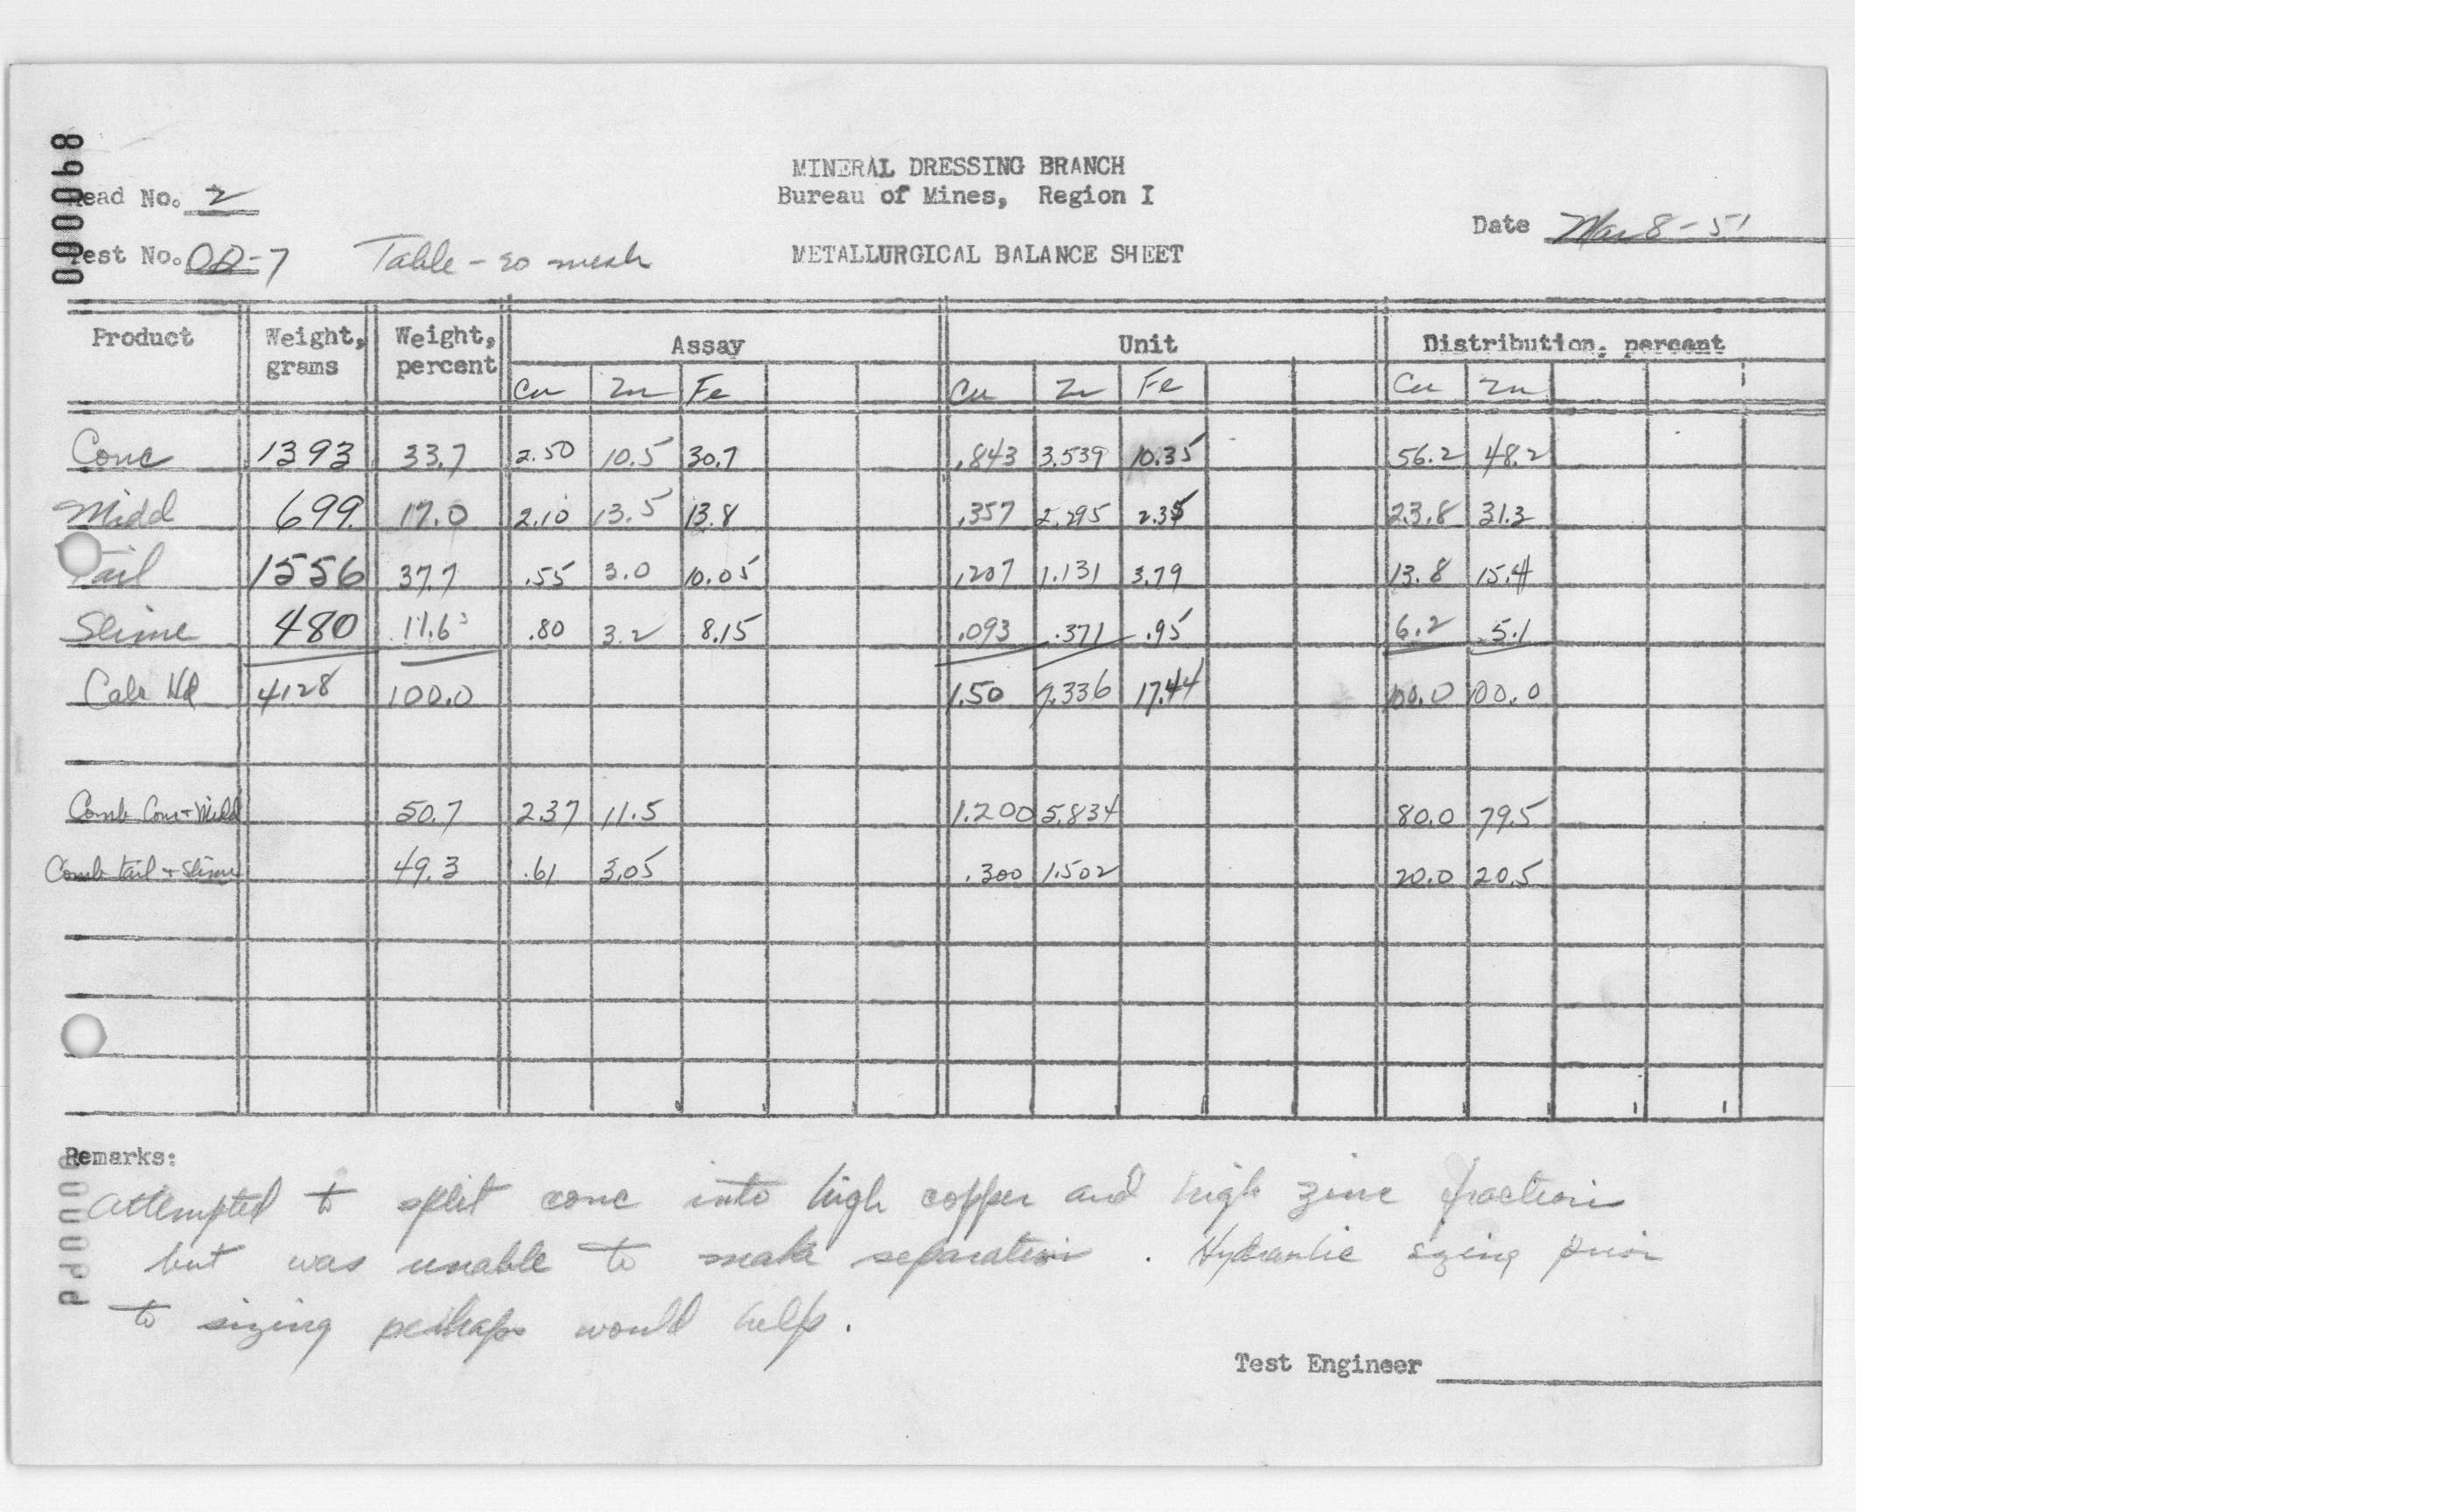 000068
MINERAL DRESSING BRANCH
Bureau of Mines, Region I
Head No. 2
Date Mar 8-51
Test No. OD-7 Table - 20 mesh
METALLURGICAL BALANCE SHEET
Product Weight, grams Weight, percent Assay Unit Distribution, percent
Cu Zn Fe Cu Zn Fe Cu Zn
Conc 1393 33.7 2.50 10.5 30.7 .843 3.539 10.35 56.2 48.2
Midd 699 17.0 2.10 13.5 13.8 .357 2.295 2.35 23.8 31.3
Tail 1556 37.7 .55 3.0 10.05 .207 1.131 3.79 13.8 15.4
Slime 480 11.6 .80 3.2 8.15 .093 .371 .95 6.2 5.1
Calc Hd 4128 100.0 1.50 7.336 17.44 100.0 100.0
Comb Conc + Midd 50.7 2.37 11.5 1.200 5.834 80.0 79.5
Comb tail + Slime 49.3 .61 3.05 .300 1.502 20.0 20.5
Remarks:
Attempted to split conc into high copper and high zinc fractions
but was unable to make separation. Hydraulic sizing prior
to sizing perhaps would help.
Test Engineer